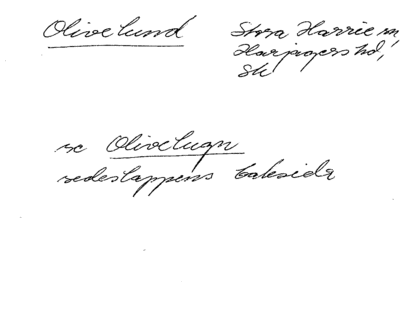 Olivelund
Stora Harrie sn,
Harjagers hd,
Sk
se Olivelugn
sedeslappens baksida